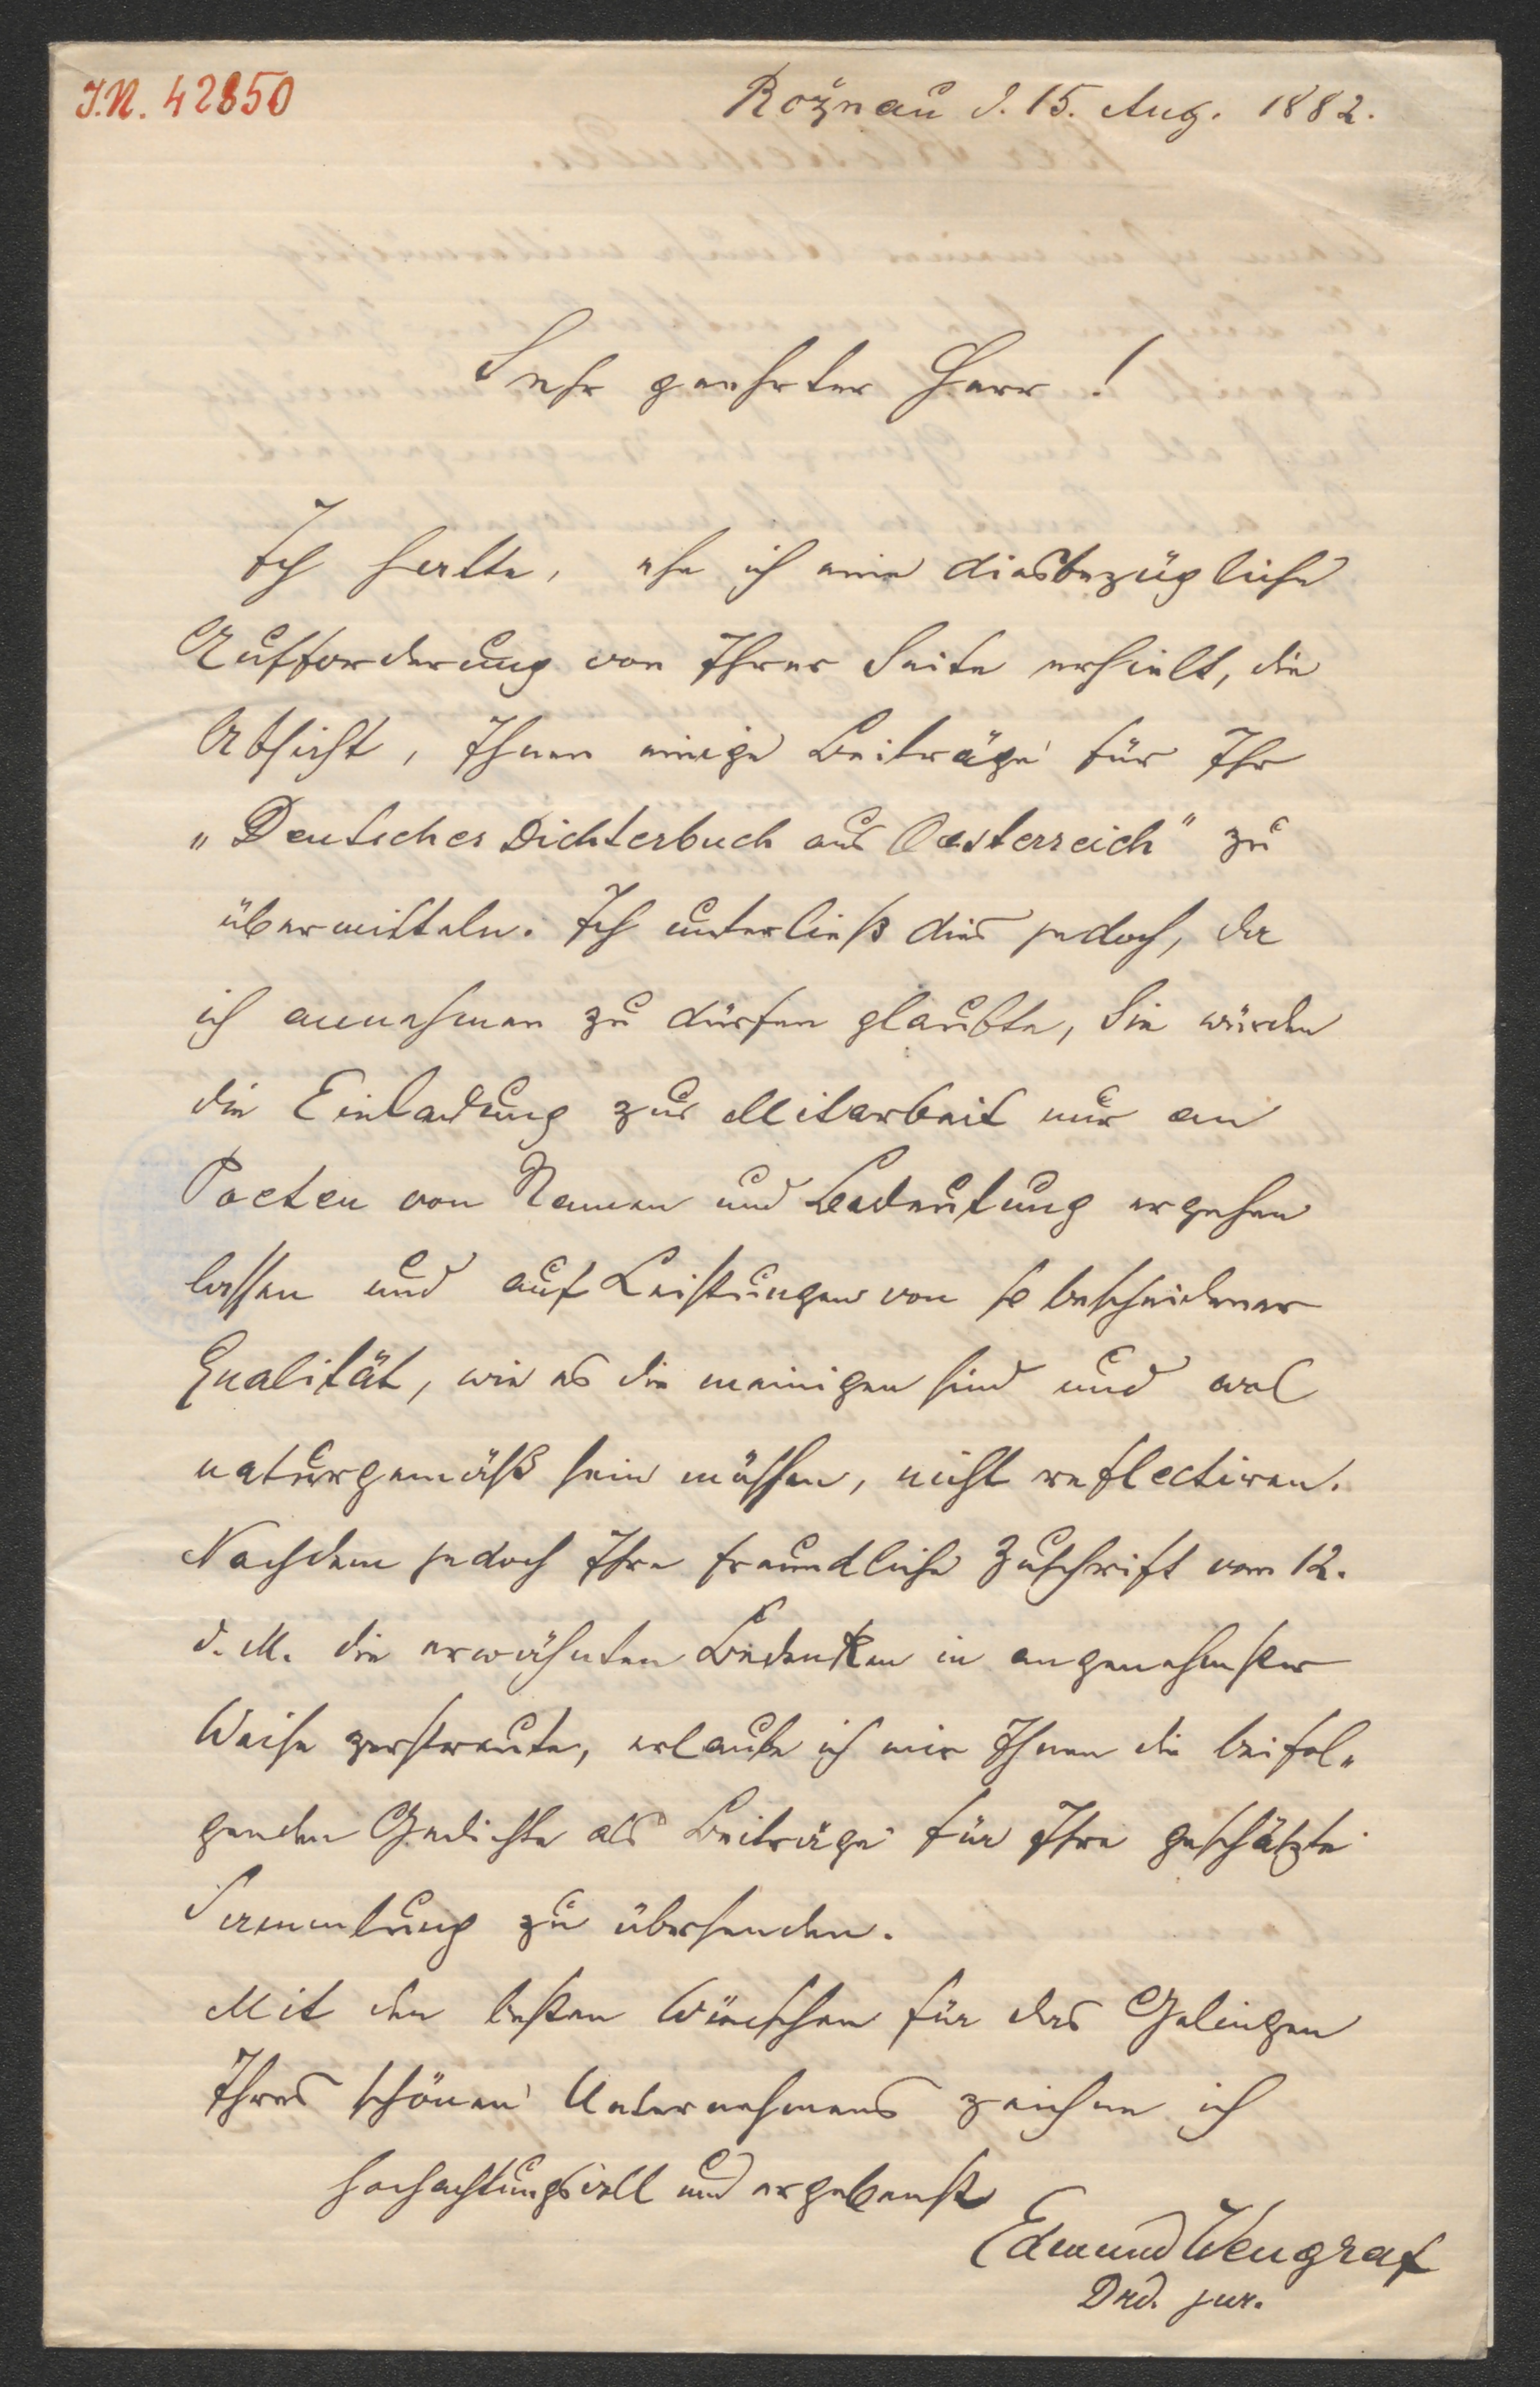 J.N. 42850
Rožnau d. 15. Aug. 1882.
Sehr geehrter Herr!
Ich hatte, ehe ich eine diesbezügliche
Aufforderung von Ihrer Seite erhielt, die
Absicht, Ihnen einige Beiträge für Ihr
„Deutsches Dichterbuch aus Oesterreich" zu
übermitteln. Ich unterließ dies jedoch, da
ich annehmen zu dürfen glaubte, Sie würden
die Einladung zur Mitarbeit nur an
Poeten von Namen und Bedeutung ergehen
lassen und auf Leistungen von so bescheidener
Qualität, wie es die meinigen sind und wol
naturgemäß sein müssen, nicht reflectiren.
Nachdem jedoch Ihre freundliche Zuschrift vom 12.
d. M. die erwähnten Bedenken in angenehmster
Weise zerstreute, erlaube ich mir Ihnen die beifol-
genden Gedichte als Beiträge für Ihre geschätzte
Sammlung zu übersenden.
Mit den besten Wünschen für das Gelingen
Ihres schönen Unternehmens zeichne ich
hochachtungsvoll und ergebenst
Edmund Wengraf
Drd. jur.